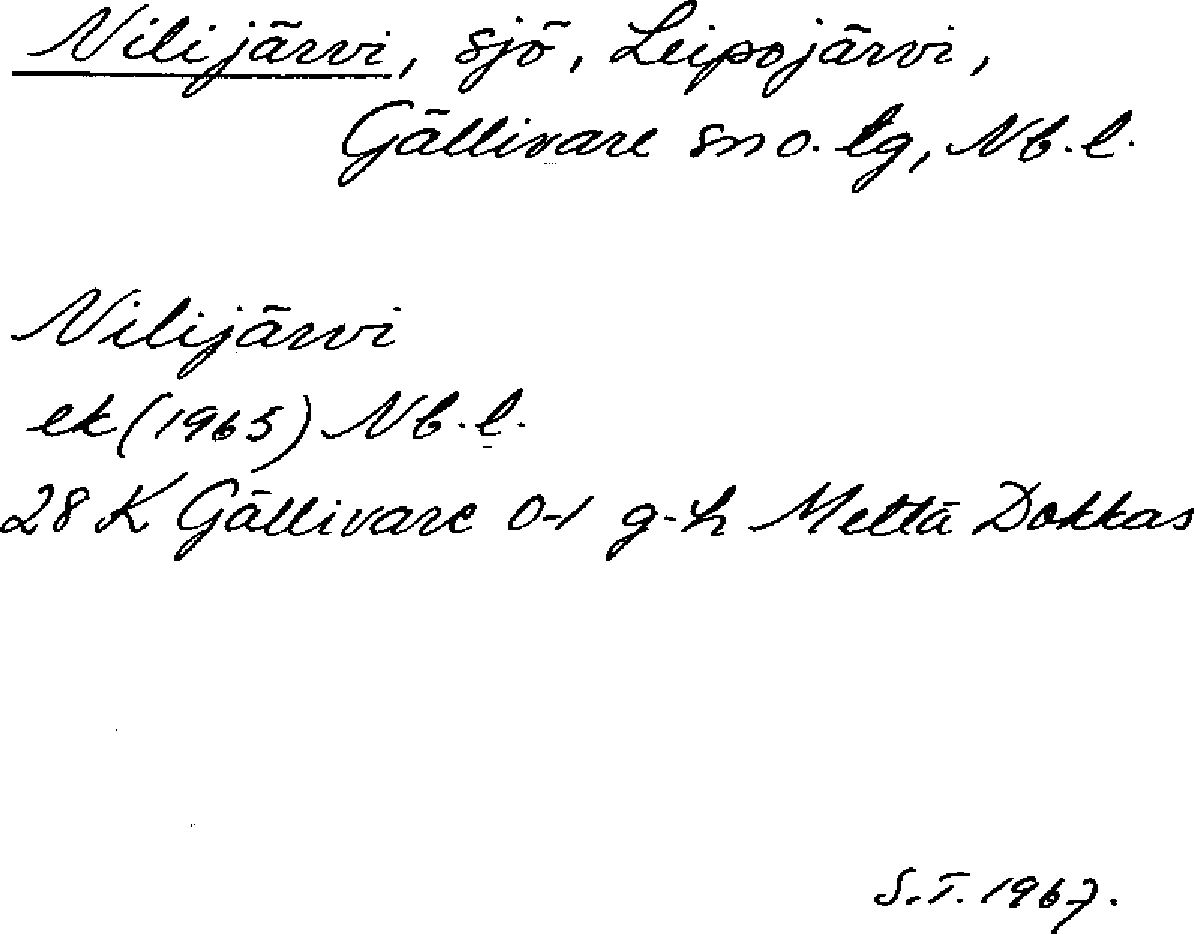 Nilijärvi, sjö, Leipojärvi,
Gällivare sn o. tg, Nb. l.
Nilijärvi
ek (1965) Nb. l.
28 K Gällivare 0-1 g-h Mettä Dokkas
S.T. 1967.